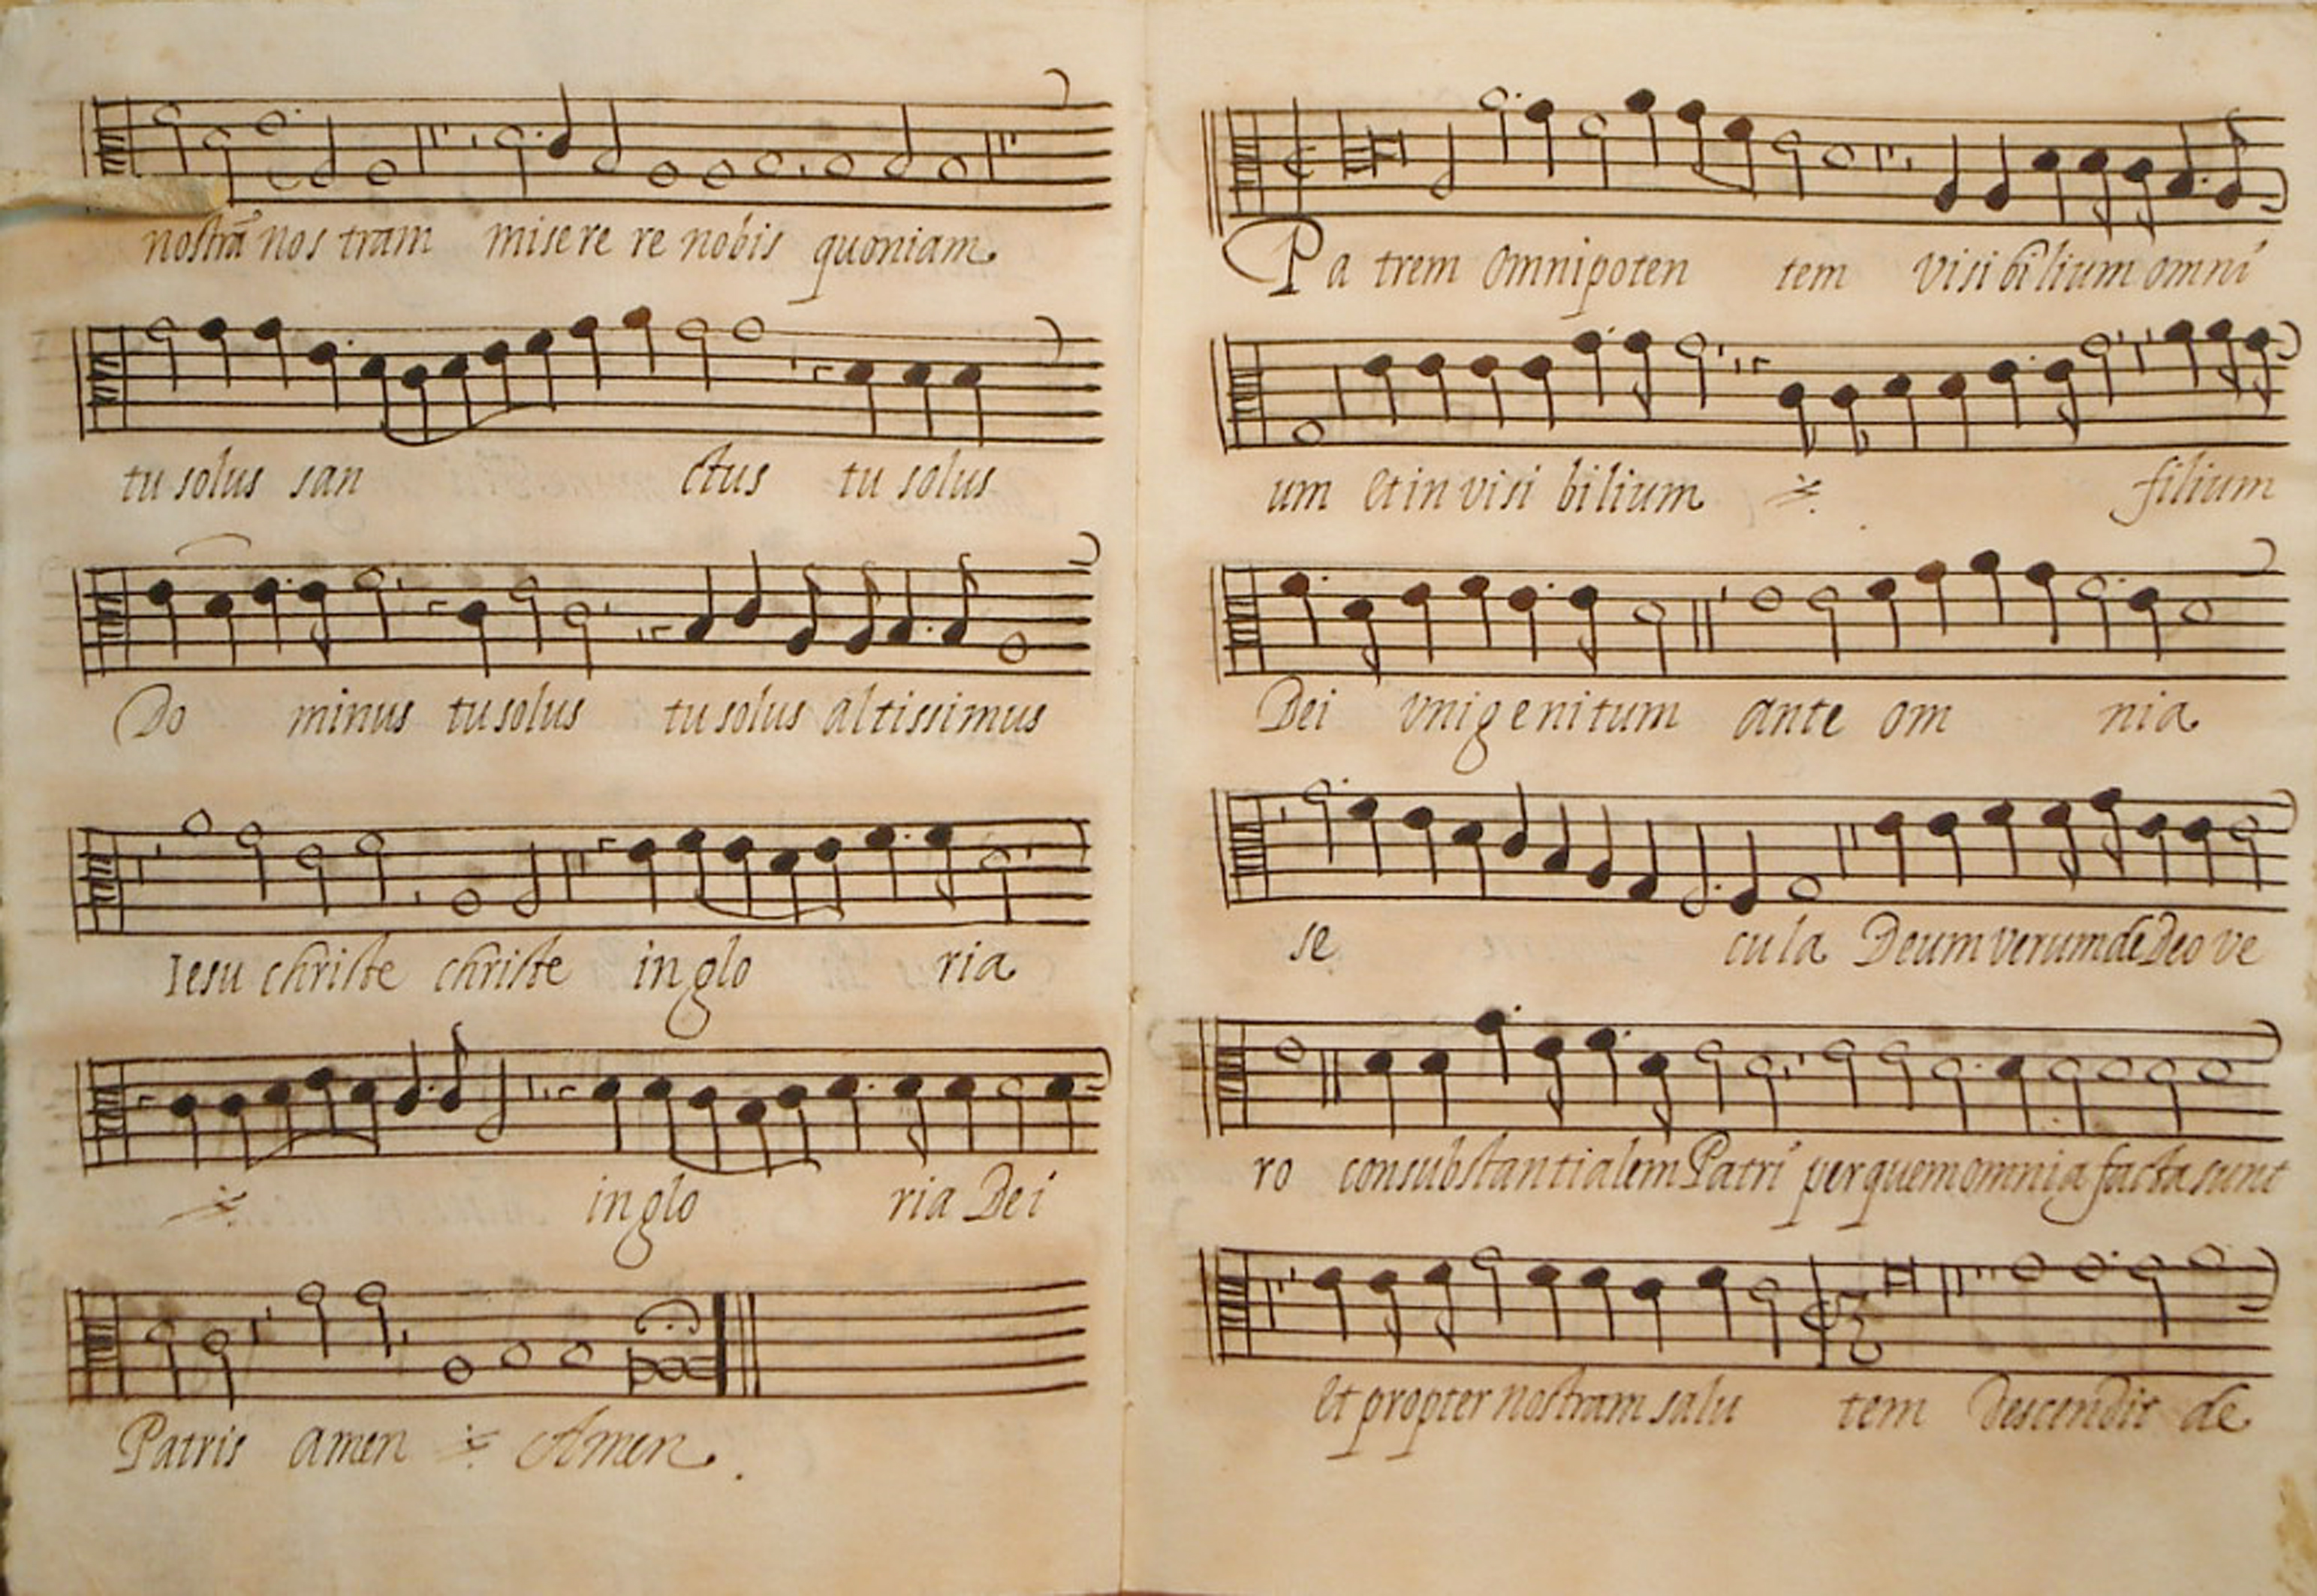 nostrã nos tram misere re nobis quoniam.
tu solus san ctus tu solus
Do minus tu solus tu solus altissimus
Iesu christe christe in glo ria
in glo ria Dei
Patris amen Amen.
Pa trem omnipoten tem visibilium omni
um et in visi bilium filium
Dei vnigenitum ante om nia
se cula Deum verum de Deo ve
ro consubstantialem Patri per quem omnia facta sunt
et propter nostram salu tem descendit de